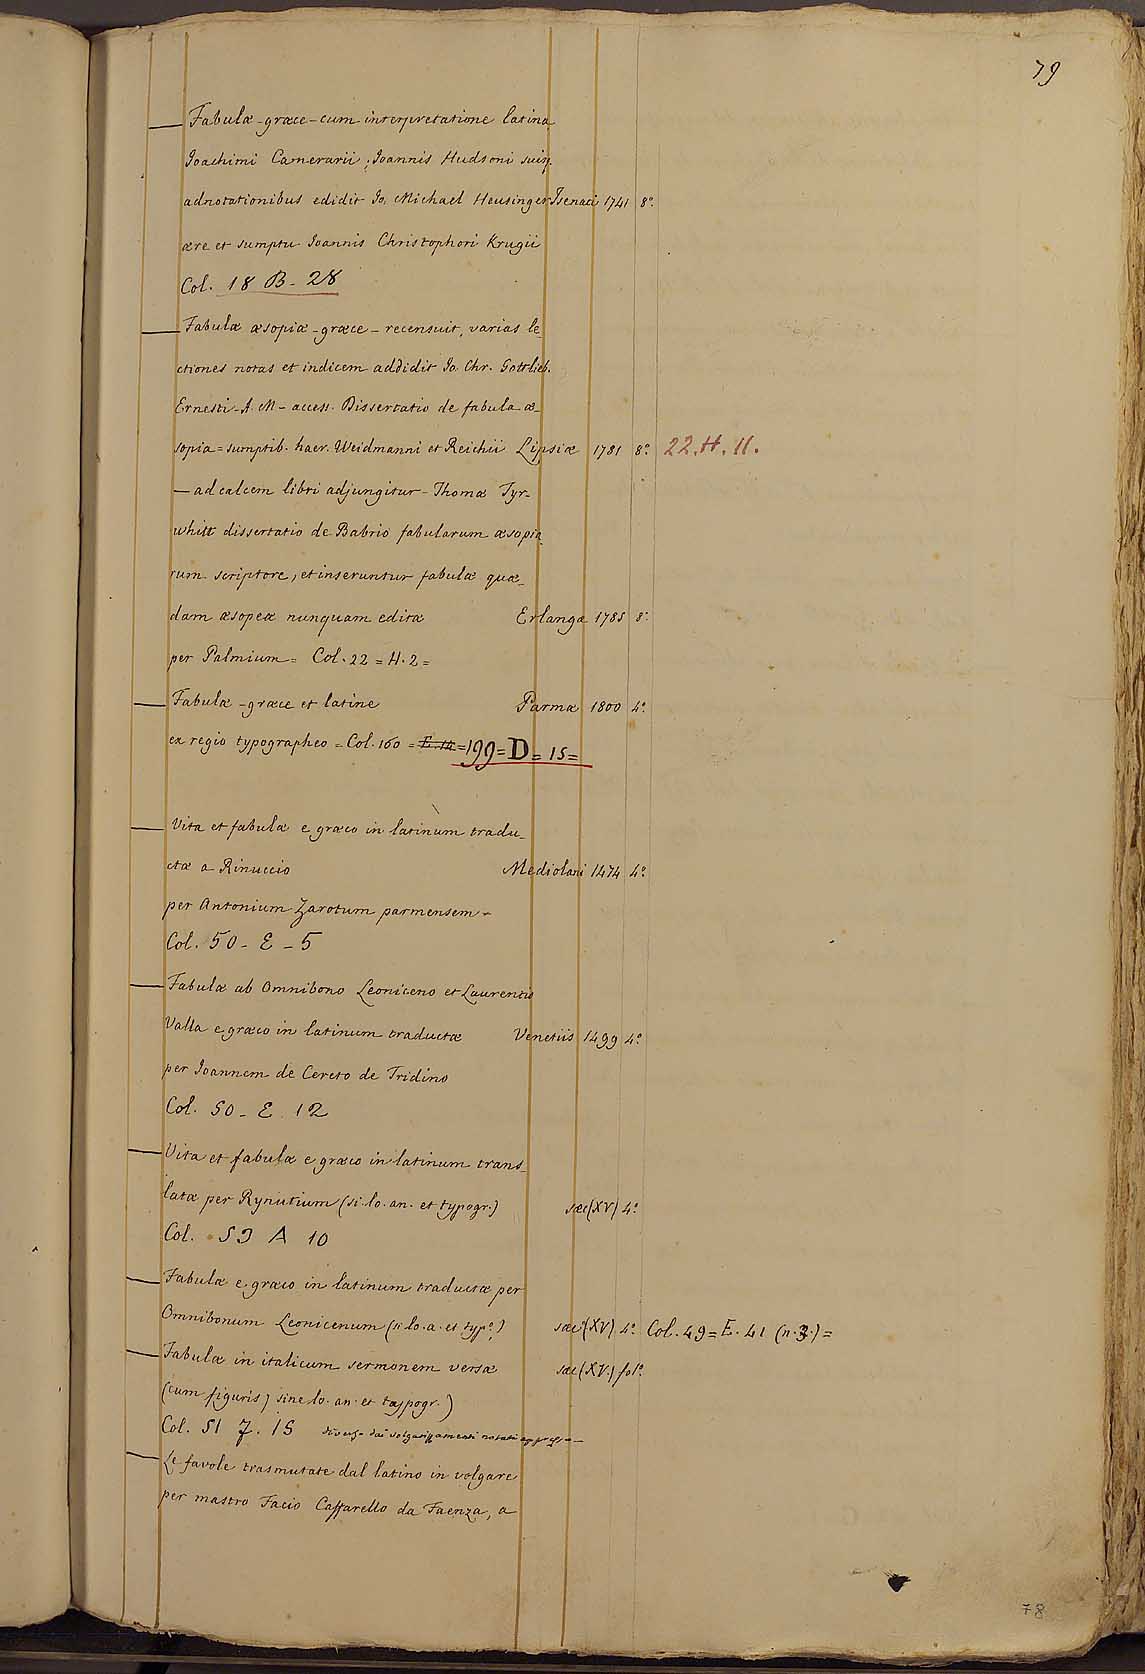 79
— Fabulæ - græce - cum interpretatione latina
Joachimi Camerarii, Joannis Hudsoni suisq.
adnotationibus edidit Jo. Michael Heusinger Isenaci 1741 8º.
ære et sumptu Joannis Christophori Krugii
Col. 18 B - 28
— Fabulæ æsopiæ - græce - recensuit, varias le_
ctiones notas et indicem addidit Jo. Chr. Gottlieb.
Ernesti - A. M - access. Dissertatio de fabula æ_
sopia = sumptib. haer. Weidmanni et Reichii Lipsiæ 1781 8º. 22. H. 11.
— ad calcem libri adjungitur - Thomæ Tyr_
whitt dissertatio de Babrio fabularum æsopia_
rum scriptore, et inseruntur fabulæ quæ_
dam æsopeæ nunquam editæ Erlangæ 1785 8º.
per Palmium = Col. 22 = H. 2 =
— Fabulæ - græce et latine Parmæ 1800 4º.
ex regio typographeo = Col. 160 = = 199 = D = 15 =
— Vita et fabulæ e græco in latinum tradu_
ctæ a Rinuccio Mediolani 1474 4º.
per Antonium Zarotum parmensem -
Col. 50 - E - 5
— Fabulæ ab Omnibono Leoniceno et Laurentio
Valla e græco in latinum traductæ Venetiis 1499 4º.
per Joannem de Cereto de Tridino
Col. 50 - E. 12
— Vita et fabulæ e græco in latinum trans_
latæ per Rynutium (si. lo. an. et typogr.) sæc (XV) 4º.
Col. 53 A 10
— Fabulæ e græco in latinum traductæ per
Omnibonum Leonicenum (si. lo. a. et typº.) sæc (XV) 4º. Col. 49 = E. 41 (n. 3.) =
— Fabulæ in italicum sermonem versæ sæc (XV.) folº.
(cum figuris) sine lo. an. et typogr.)
Col. 51 7. 15 dai volgarizzamenti notati
— Le favole trasmutate dal latino in volgare
per mastro Facio Caffarello da Faenza, a
78